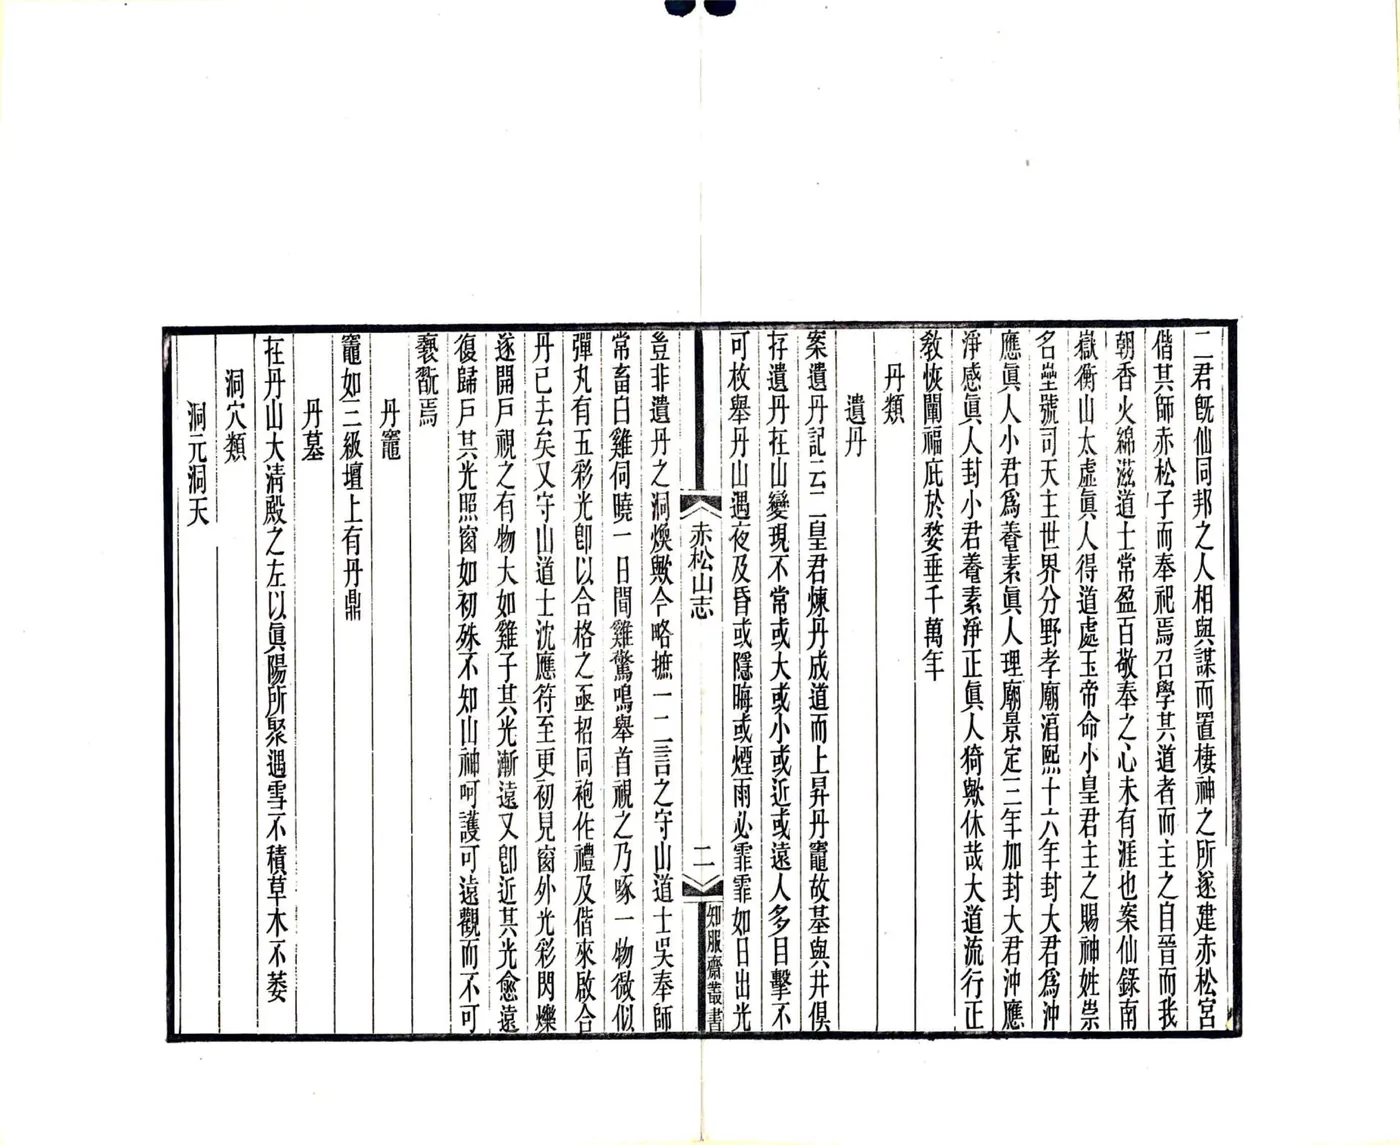 二君旣仙同邦之人相與謀而置棲神之所遂建赤松宮
偕其師赤松子而奉祀焉召學其道者而主之自晉而我
朝香火綿滋道士常盈百敬奉之心未有涯也案仙錄南
嶽衡山太虛眞人得道處玉帝命小皇君主之賜神姓崇
名壘號司天主世界分野孝廟湻熙十六年封大君爲沖
應眞人小君爲養素眞人理廟景定三年加封大君沖應
淨感眞人封小君養素淨正眞人猗歟休哉大道流行正
敎恢闡福庇於婺垂千萬年
丹類
遺丹
案遺丹記云二皇君煉丹成道而上昇丹竈故基與井俱
存遺丹在山變現不常或大或小或近或遠人多目擊不
可枚舉丹山遇夜及昏或隱晦或煙雨必霏霏如日出光
赤松山志
二
知服齋叢書
豈非遺丹之洞煥歟今略摭一二言之守山道士吳奉師
常畜白雞伺曉一日間雞驚鳴舉首視之乃啄一物微似
彈丸有五彩光卽以合格之亟招同袍作禮及偕來啟合
丹已去矣又守山道士沈應符至更初見窗外光彩閃爍
遂開戸視之有物大如雞子其光漸遠又卽近其光愈遠
復歸戸其光照窗如初殊不知山神呵護可遠觀而不可
褻翫焉
丹竈
竈如三級壇上有丹鼎
丹墓
在丹山大淸殿之左以眞陽所聚遇雪不積草木不萎
洞穴類
洞元洞天